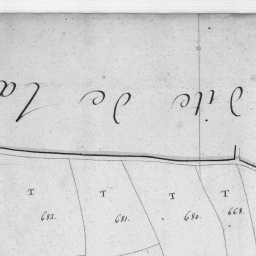 dite de la
T T T T
682. 681. 680. 668.